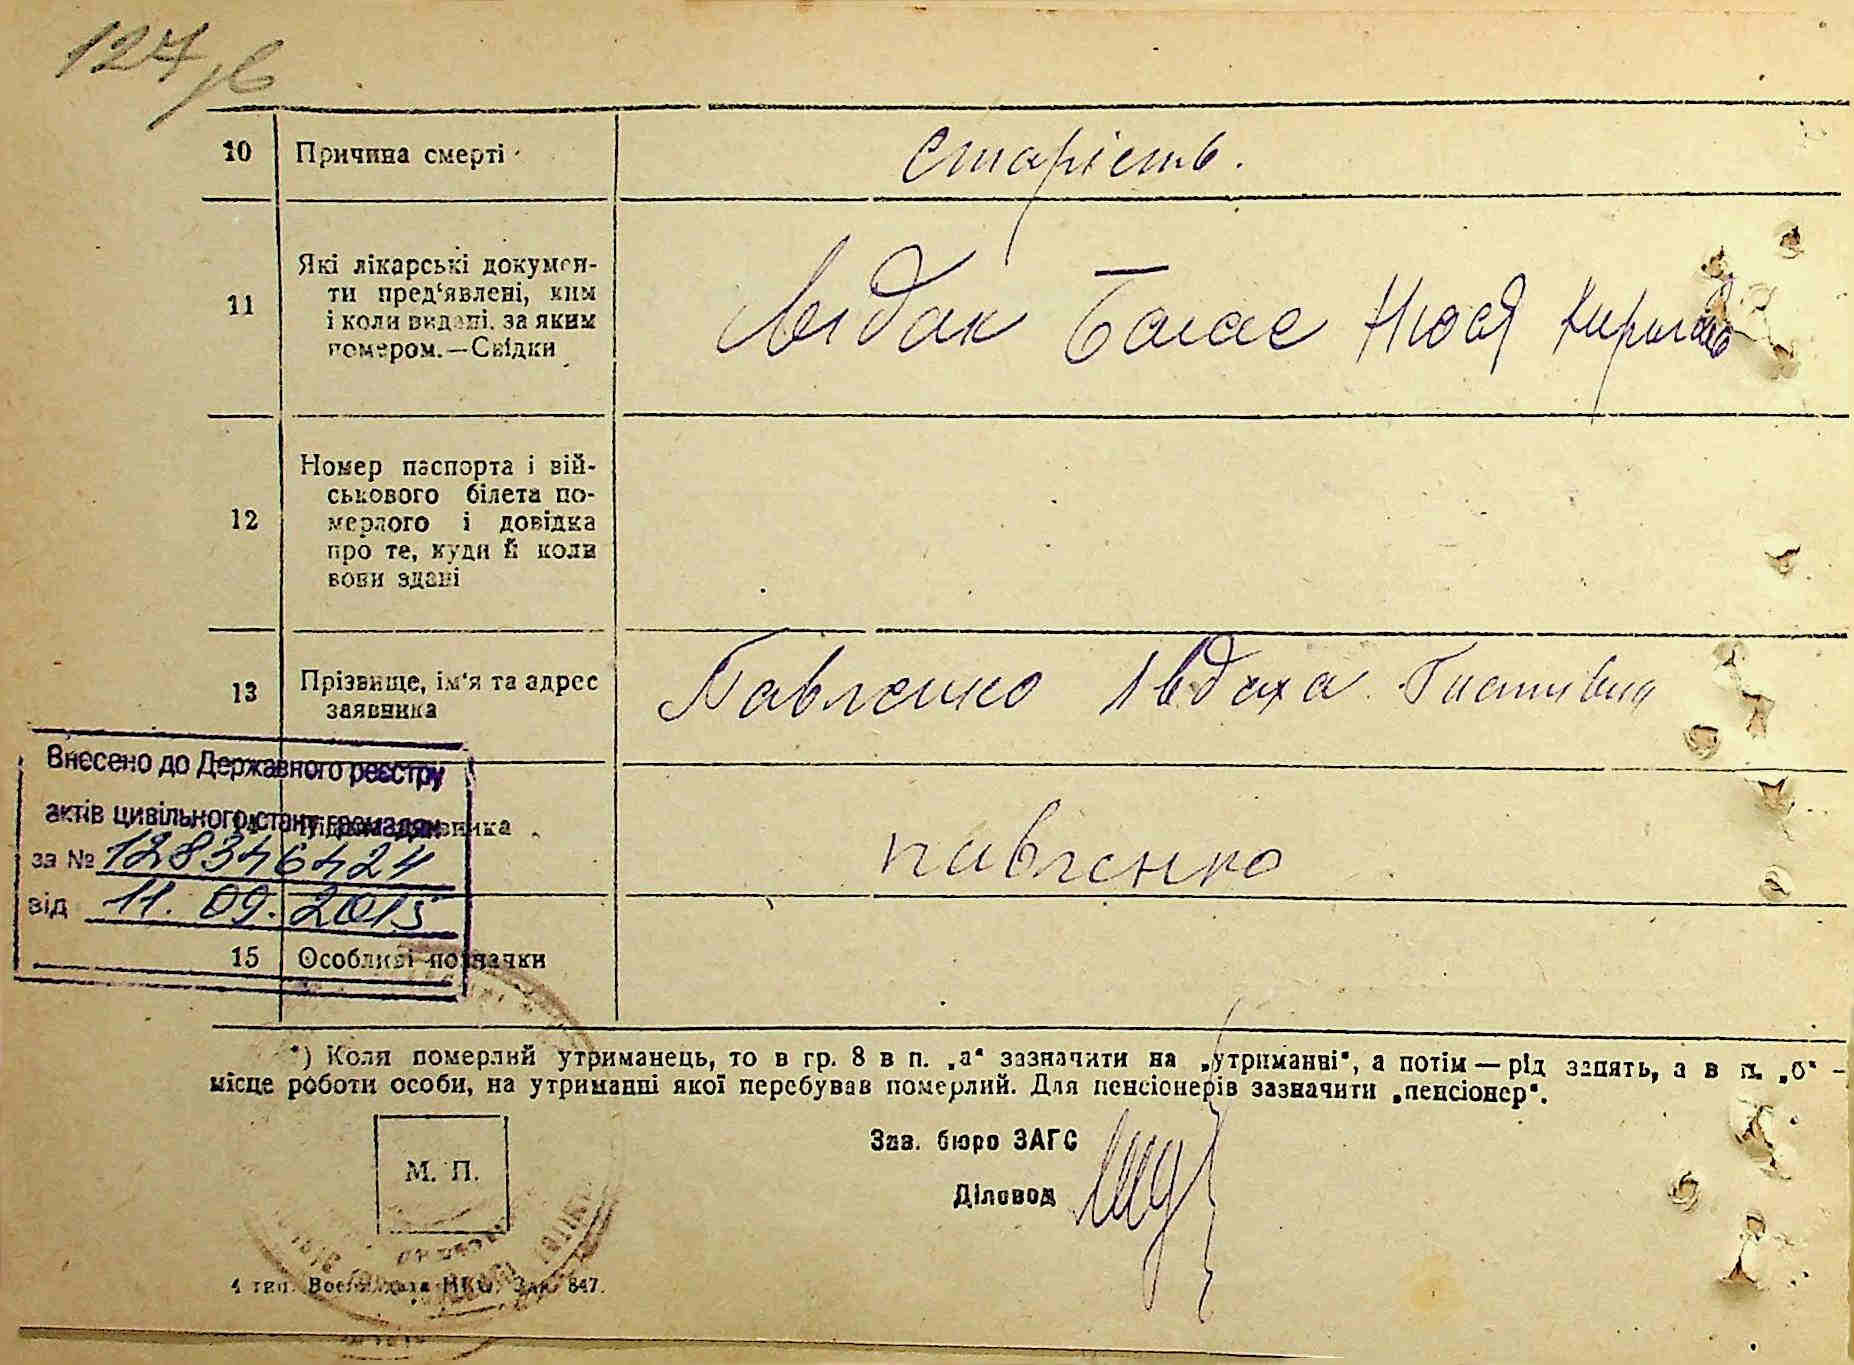 127
10 Причина смерті старість.
11 Які лікарські докумен-
ти пред'явлені, ким
і коли видані, за яким
номером.—Свідки
Нюся
12 Номер паспорта і вій-
ськового білета по-
мерлого і довідка
про те, куди й коли
вони здані
13 Прізвище, ім'я та адрес
заявника
Павленко Явдаха
Внесено до Державного реєстру
актів цивільного стану громадян
за № 128346424
від 11.09.2015
заявника
павленко
15 Особливі позначки
*) Коли померлий утриманець, то в гр. 8 в п. „а“ зазначити на „утриманні“, а потім — рід занять, а в п. „б“ —
місце роботи особи, на утриманні якої перебував померлий. Для пенсіонерів зазначити „пенсіонер“.
М. П.
Зав. бюро ЗАГС
Діловод
4 тип. Воениздата НКО. Зак. 847.